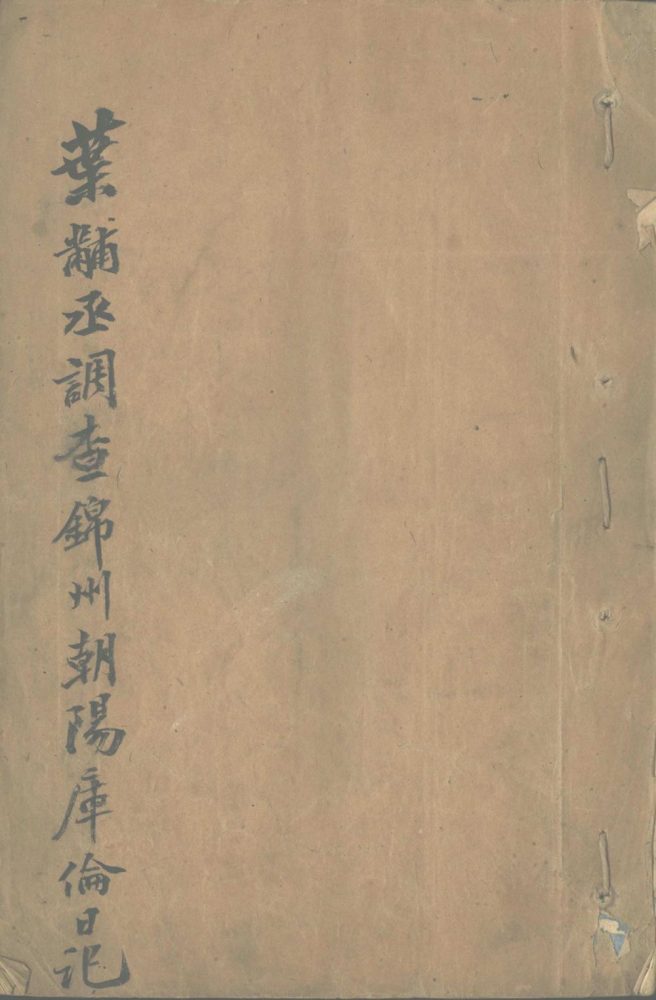 葉黼丞調查錦州朝陽庫倫日记